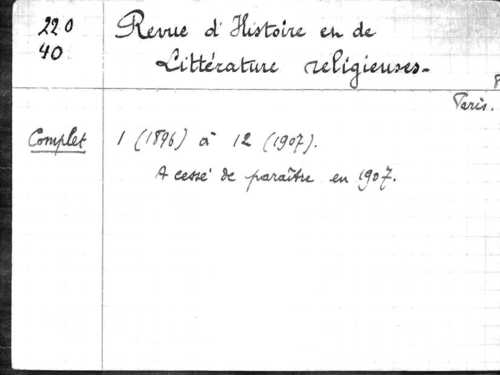 220
40
Revue d'Histoire en de
Littérature religieuses.
Paris.
Complet 1 (1896) à 12 (1907).
A cessé de paraître en 1907.